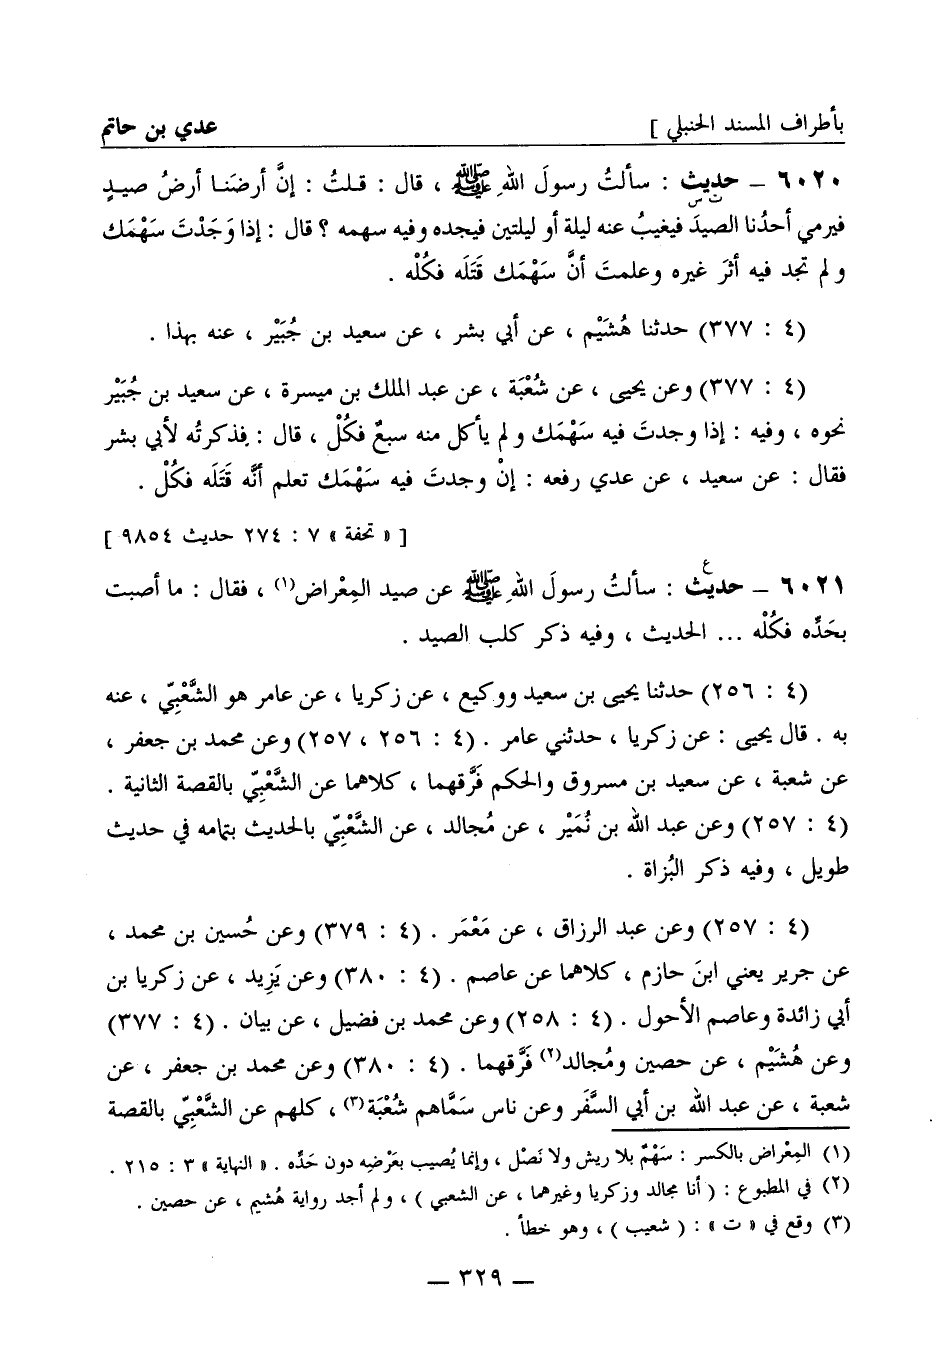 بأطراف المسند الحنبلي ] عدي بن حاتم
٦٠٢٠ – حديث : سألتُ رسولَ اللهِ ﷺ ، قال : قلتُ : إنَّ أرضَنا أرضُ صيدٍ
ت س
فيرمي أحدُنا الصيدَ فيغيبُ عنه ليلة أو ليلتين فيجده وفيه سهمه ؟ قال : إذا وَجَدْتَ سَهْمَك
ولم تجد فيه أثرَ غيره وعلمتَ أنَّ سَهْمَك قَتَله فكُلْه .
(٤ : ٣٧٧) حدثنا هُشَيْم ، عن أبي بشر ، عن سعيد بن جُبَيْر ، عنه بهذا .
(٤ : ٣٧٧) وعن يحيى ، عن شُعْبَة ، عن عبد الملك بن ميسرة ، عن سعيد بن جُبَيْر
نحوه ، وفيه : إذا وجدتَ فيه سَهْمَك ولم يأكل منه سبعٌ فكُلْ ، قال : فذكرتُه لأبي بشر
فقال : عن سعيد ، عن عدي رفعه : إنْ وجدتَ فيه سَهْمَك تعلم أنَّه قَتَله فكُلْ .
[ « تحفة » ٧ : ٢٧٤ حديث ٩٨٥٤ ]
ع
٦٠٢١ – حديث : سألتُ رسولَ اللهِ ﷺ عن صيد المِعْراض(١) ، فقال : ما أصبت
بحَدِّه فكُلْه ... الحديث ، وفيه ذكر كلب الصيد .
(٤ : ٢٥٦) حدثنا يحيى بن سعيد ووكيع ، عن زكريا ، عن عامر هو الشَّعْبِيّ ، عنه
به . قال يحيى : عن زكريا ، حدثني عامر . (٤ : ٢٥٦ ، ٢٥٧) وعن محمد بن جعفر ،
عن شعبة ، عن سعيد بن مسروق والحكم فَرَّقهما ، كلاهما عن الشَّعْبِيّ بالقصة الثانية .
(٤ : ٢٥٧) وعن عبد الله بن نُمَيْر ، عن مُجالد ، عن الشَّعْبِيّ بالحديث بتمامه في حديث
طويل ، وفيه ذكر البُزاة .
(٤ : ٢٥٧) وعن عبد الرزاق ، عن مَعْمَر . (٤ : ٣٧٩) وعن حُسين بن محمد ،
عن جرير يعني ابنَ حازم ، كلاهما عن عاصم . (٤ : ٣٨٠) وعن يَزِيد ، عن زكريا بن
أبي زائدة وعاصم الأحول . (٤ : ٢٥٨) وعن محمد بن فضيل ، عن بيان . (٤ : ٣٧٧)
وعن هُشَيْم ، عن حصين ومُجالد(٢) فَرَّقهما . (٤ : ٣٨٠) وعن محمد بن جعفر ، عن
شعبة ، عن عبد الله بن أبي السَّفَر وعن ناس سَمَّاهم شُعْبَة(٣) ، كلهم عن الشَّعْبِيّ بالقصة
(١) المِعْراض بالكسر : سَهْمٌ بلا ريش ولا نَصْل ، وإنما يُصيب بعَرْضِه دون حَدِّه . « النهاية » ٣ : ٢١٥ .
(٢) في المطبوع : ( أنا مجالد وزكريا وغيرهما ، عن الشعبي ) ، ولم أجد رواية هُشيم ، عن حصين .
(٣) وقع في « ت » : ( شعيب ) ، وهو خطأ .
– ٣٢٩ –